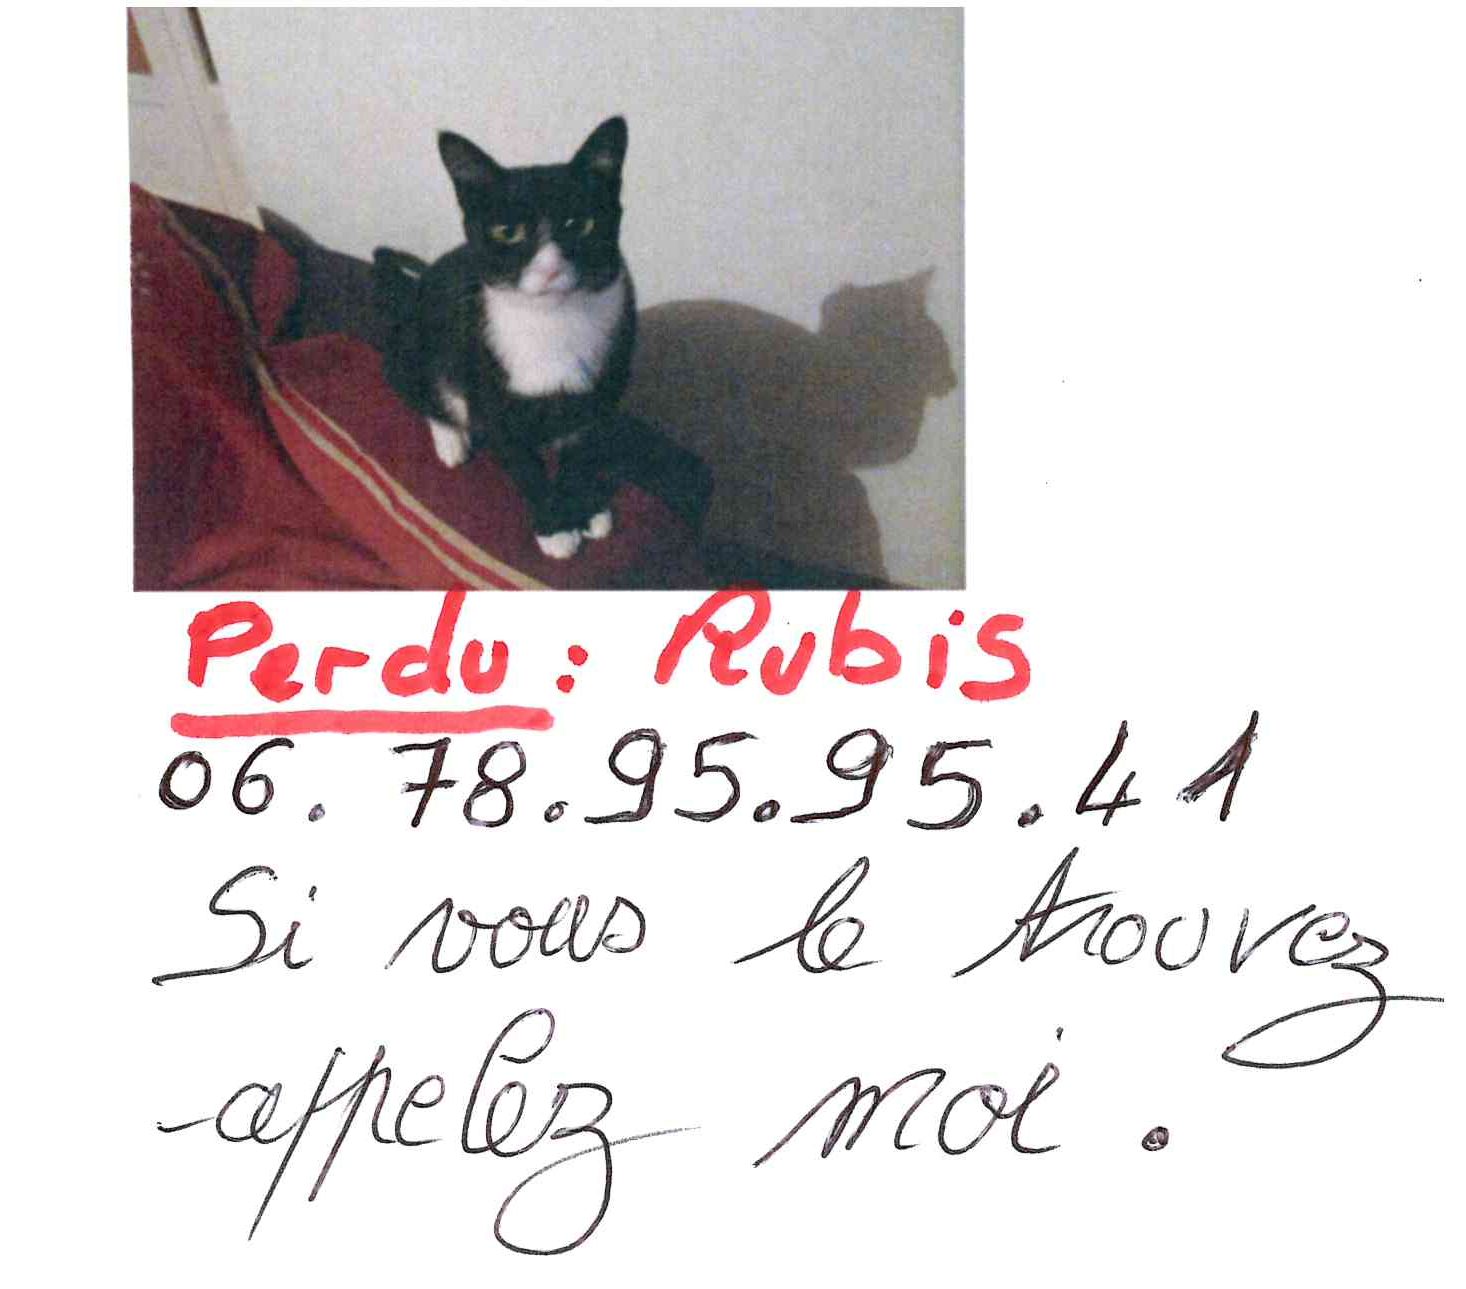 Perdu : Rubis
06. 78.95.95.41
Si vous le trouvez
appelez moi.